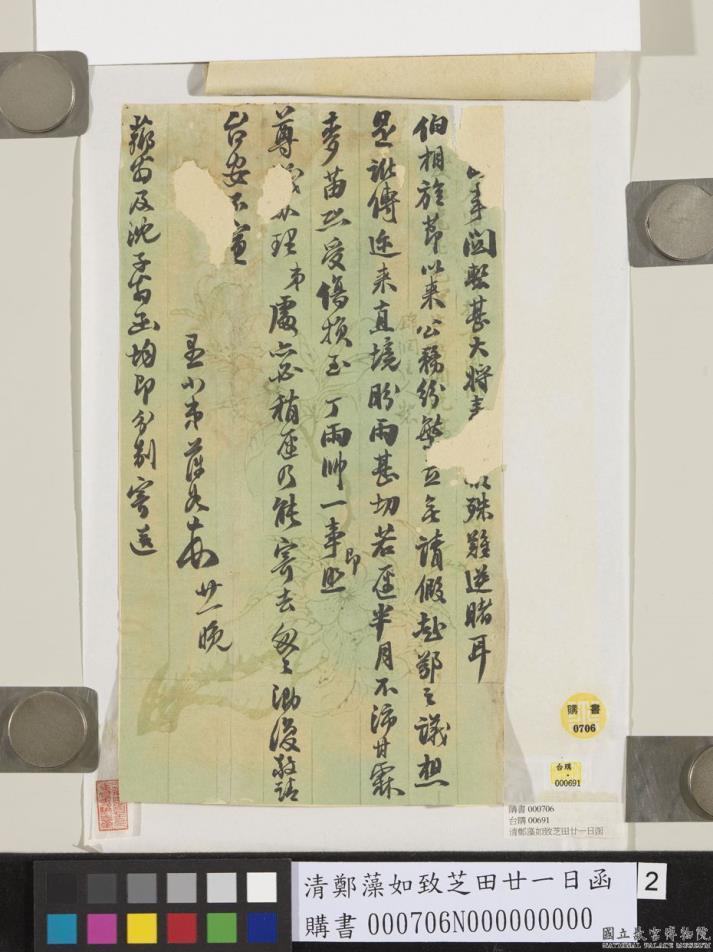 事關繫甚大將來 殊難逆睹耳
伯相旌節以來公務紛繁 請假赴鄂之議想
是訛傳近來直境盼雨甚切若歷半月不沛甘霖
麥苗恐受傷損至丁雨帥一事照即
尊 辦理弟處亦必稍歷乃能寄去匆匆泐復敬請
台安不宣
愚小弟藻如 廿一晚
及沈子 函均即分別寄送
購書
0706
台購
000691
購書 000706
台購 00691
清鄭藻如致芝田廿一日函
清鄭藻如致芝田廿一日函
購書 000706N000000000
2
國立故宮博物院
NATIONAL PALACE MUSEUM